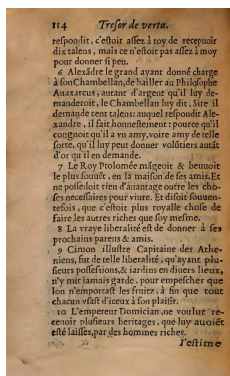 114 Tresor de vertu.
respondit, c'estoit assez à toy de recepuoir
dix talens, mais ce n'estoit pas assez à moy
pour donner si peu.
6 Alexãdre le grand ayant donné charge
à son Chambellan, de bailler au Philosophe
Anaxarcus, autant d'argent qu'il luy de-
manderoit, le Chambellan luy dit, Sire il
demande cent talens: auquel respondit Ale-
xandre, il fait honnestement: pource qu'il
congnoit qu'il a vn amy, voire amy de telle
sorte, qu'il luy peut donner volũtiers autãt
d'or qu'il en demande.
7 Le Roy Ptolomée mãgeoit & beuuoit
le plus souuẽt, en la maison de ses amis. Et
ne possedoit rien d'auantage outre les cho-
ses necessaires pour viure. Et disoit souuen-
tesfois, que c'estoit plus royalle chose de
faire les autres riches que soy mesme.
8 La vraye liberalité est de donner à ses
prochains parens & amis.
9 Cimon illustre Capitaine des Athe-
niens, fut de telle liberalité, qu'ayant plu-
sieurs possessions, & iardins en diuers lieux,
n'y mit iamais garde, pour empescher que
lon n'emportast les fruitz, à fin que tout
chacun vsast d'iceux à son plaisir.
10 L'empereur Domician, ne voulut re-
ceuoir plusieurs heritages, que luy auoiẽt
esté laisses, par des hommes riches.
I'estime